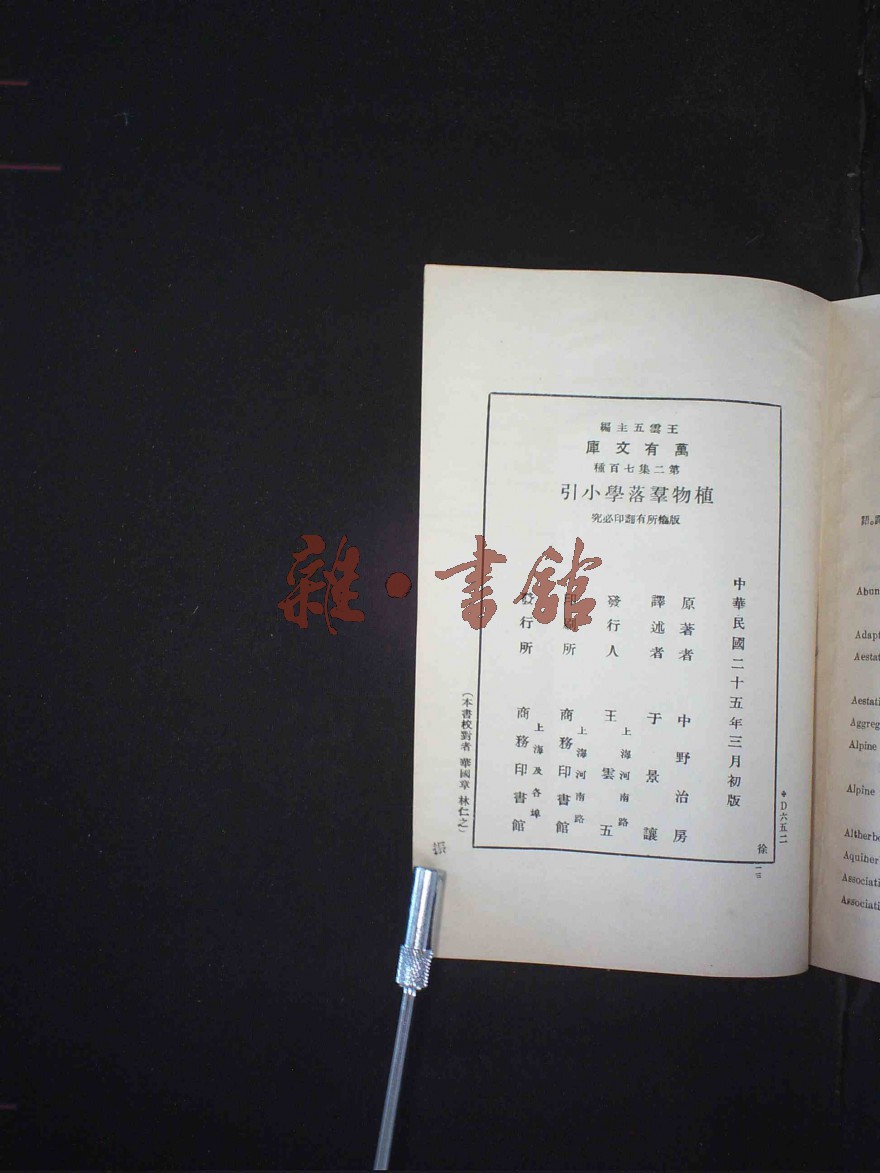 王雲五主編
萬有文庫
第二集七百種
植物羣落學小引
版權所有翻印必究
中華民國二十五年三月初版
原著者 中野治房
譯述者 于景讓
發行人 王雲五
上海河南路
印刷所 商務印書館
上海河南路
發行所 商務印書館
上海及各埠
(本書校對者 華國章 林仁之)
◆D六五二
徐
一三
雜·書館
Abun
Adapt
Aestat
Aestati
Aggreg
Alpine
Alpine
Altherbo
Aquiher
Associati
Associati